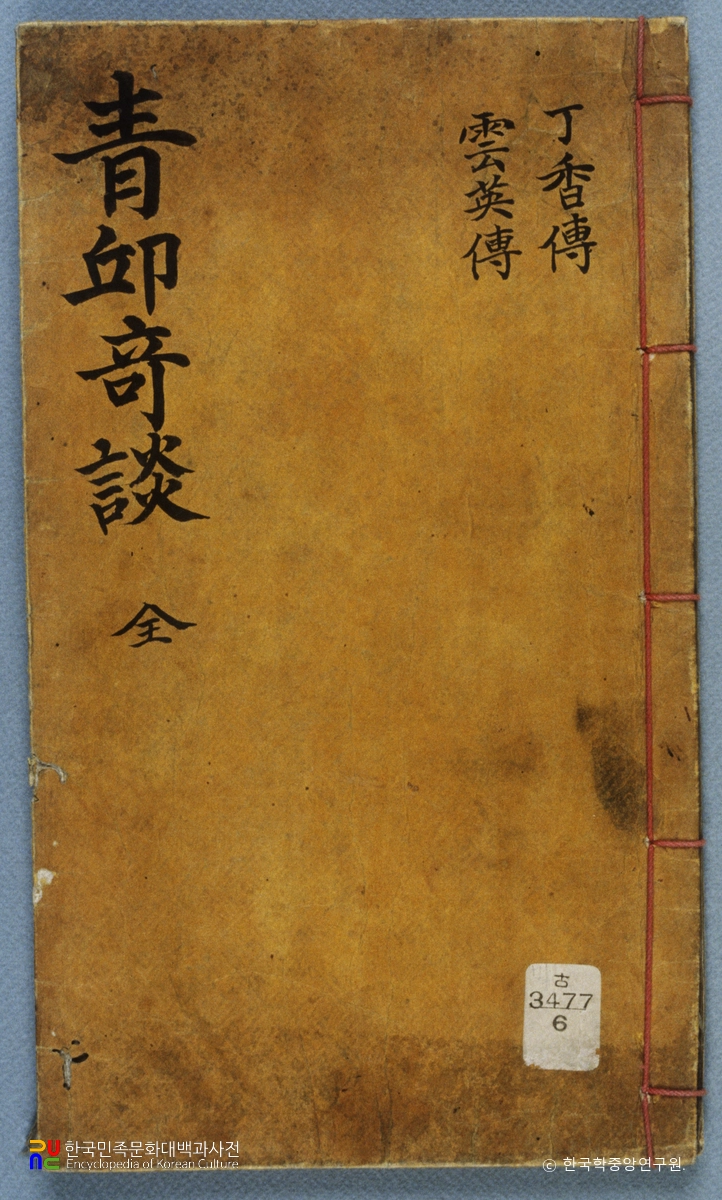 丁香傳
雲英傳
青邱奇談 全
古
3477
6
한국민족문화대백과사전
Encyclopedia of Korean Culture
© 한국학중앙연구원.